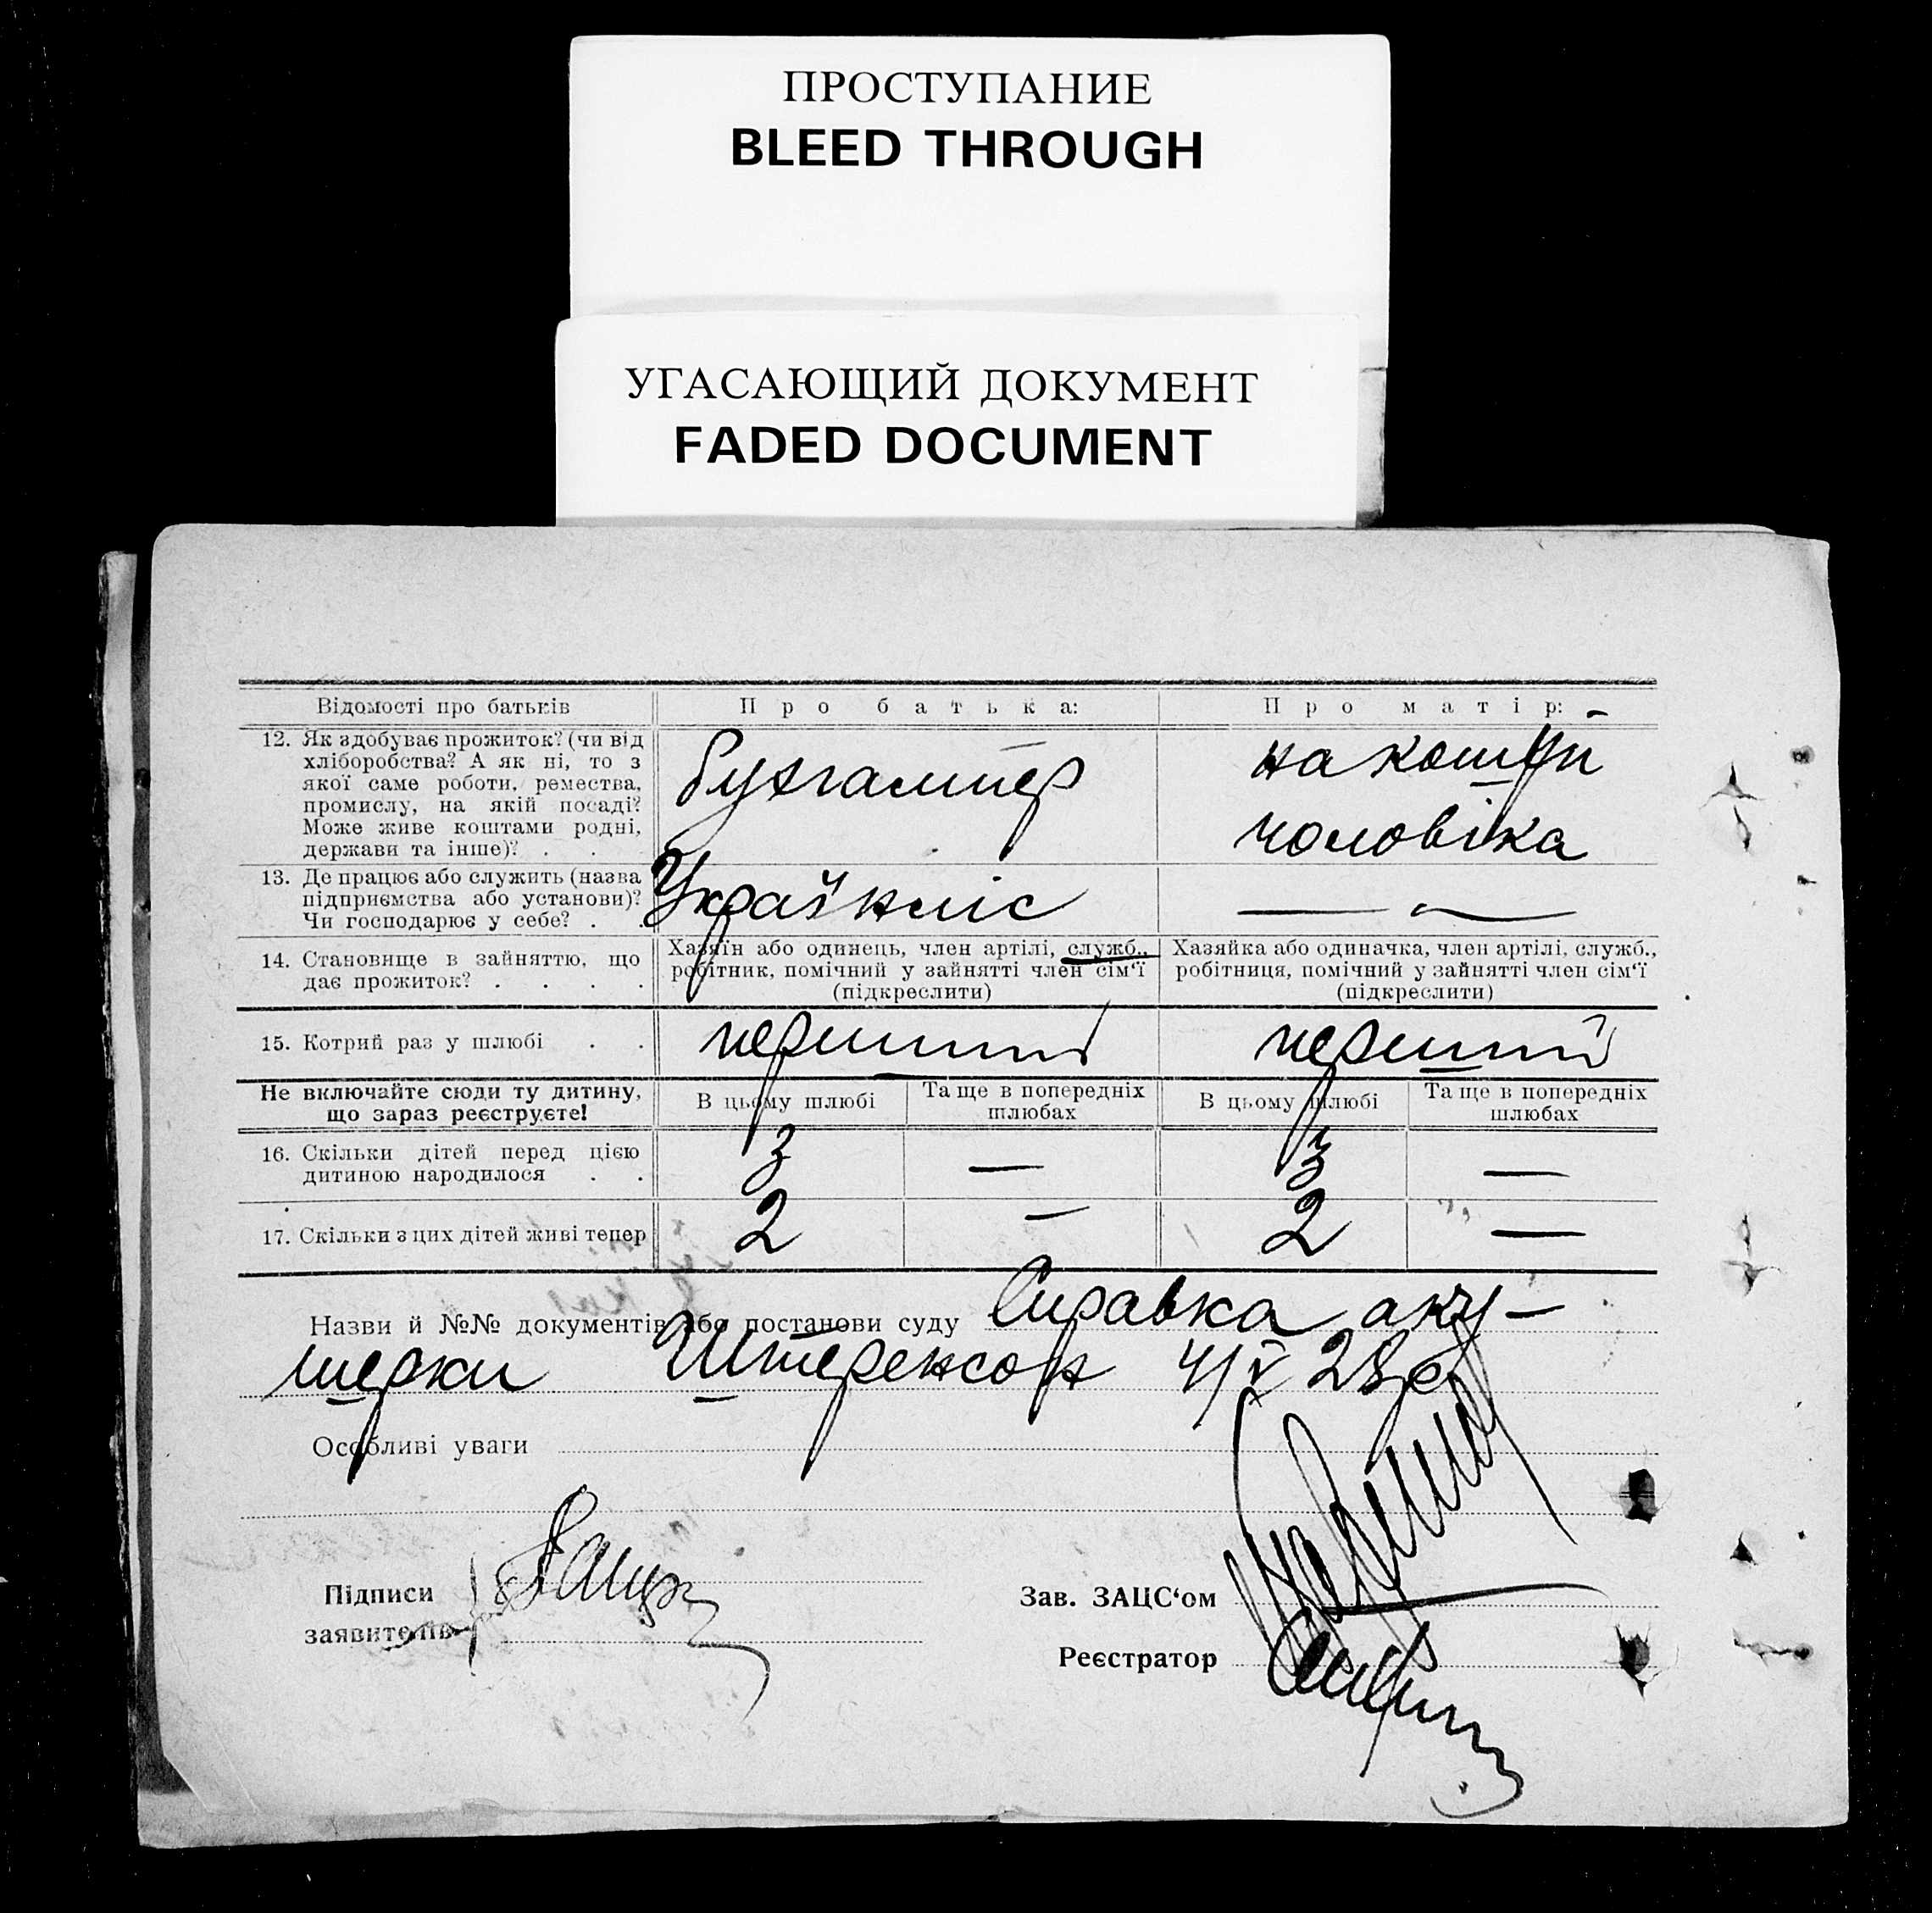 ПРОСТУПАНИЕ
BLEED THROUGH
УГАСАЮЩИЙ ДОКУМЕНТ
FADED DOCUMENT
Відомості про батьків
Про батька:
Про матір:
12. Як здобуває прожиток? (чи від
хліборобства? А як ні, то з
якої саме роботи, ремества,
промислу, на якій посаді?
Може живе коштами родні,
держави та інше)? . .
бухгалтер
на кошти
чоловіка
13. Де працює або служить (назва
підприємства або установи)?
Чи господарює у себе? . .
Українліс
—
14. Становище в зайняттю, що
дає прожиток? . . . .
Хазяїн або одинець, член артілі, служб.,
робітник, помічний у зайнятті член сім‘ї
(підкреслити)
Хазяйка або одиначка, член артілі, служб.,
робітниця, помічний у зайнятті член сім‘ї
(підкреслити)
15. Котрий раз у шлюбі . .
перший
перший
Не включайте сюди ту дитину,
що зараз реєструєте!
В цьому шлюбі
Та ще в попередніх
шлюбах
В цьому шлюбі
Та ще в попередніх
шлюбах
16. Скільки дітей перед цією
дитиною народилося . .
3
—
3
—
17. Скільки з цих дітей живі тепер
2
—
2
—
Назви й №№ документів або постанови суду Справка аку-
шерки Штеренсон 4/V 28 р
Особливі уваги
Підписи
заявителів
Зав. ЗАЦС‘ом
Реєстратор